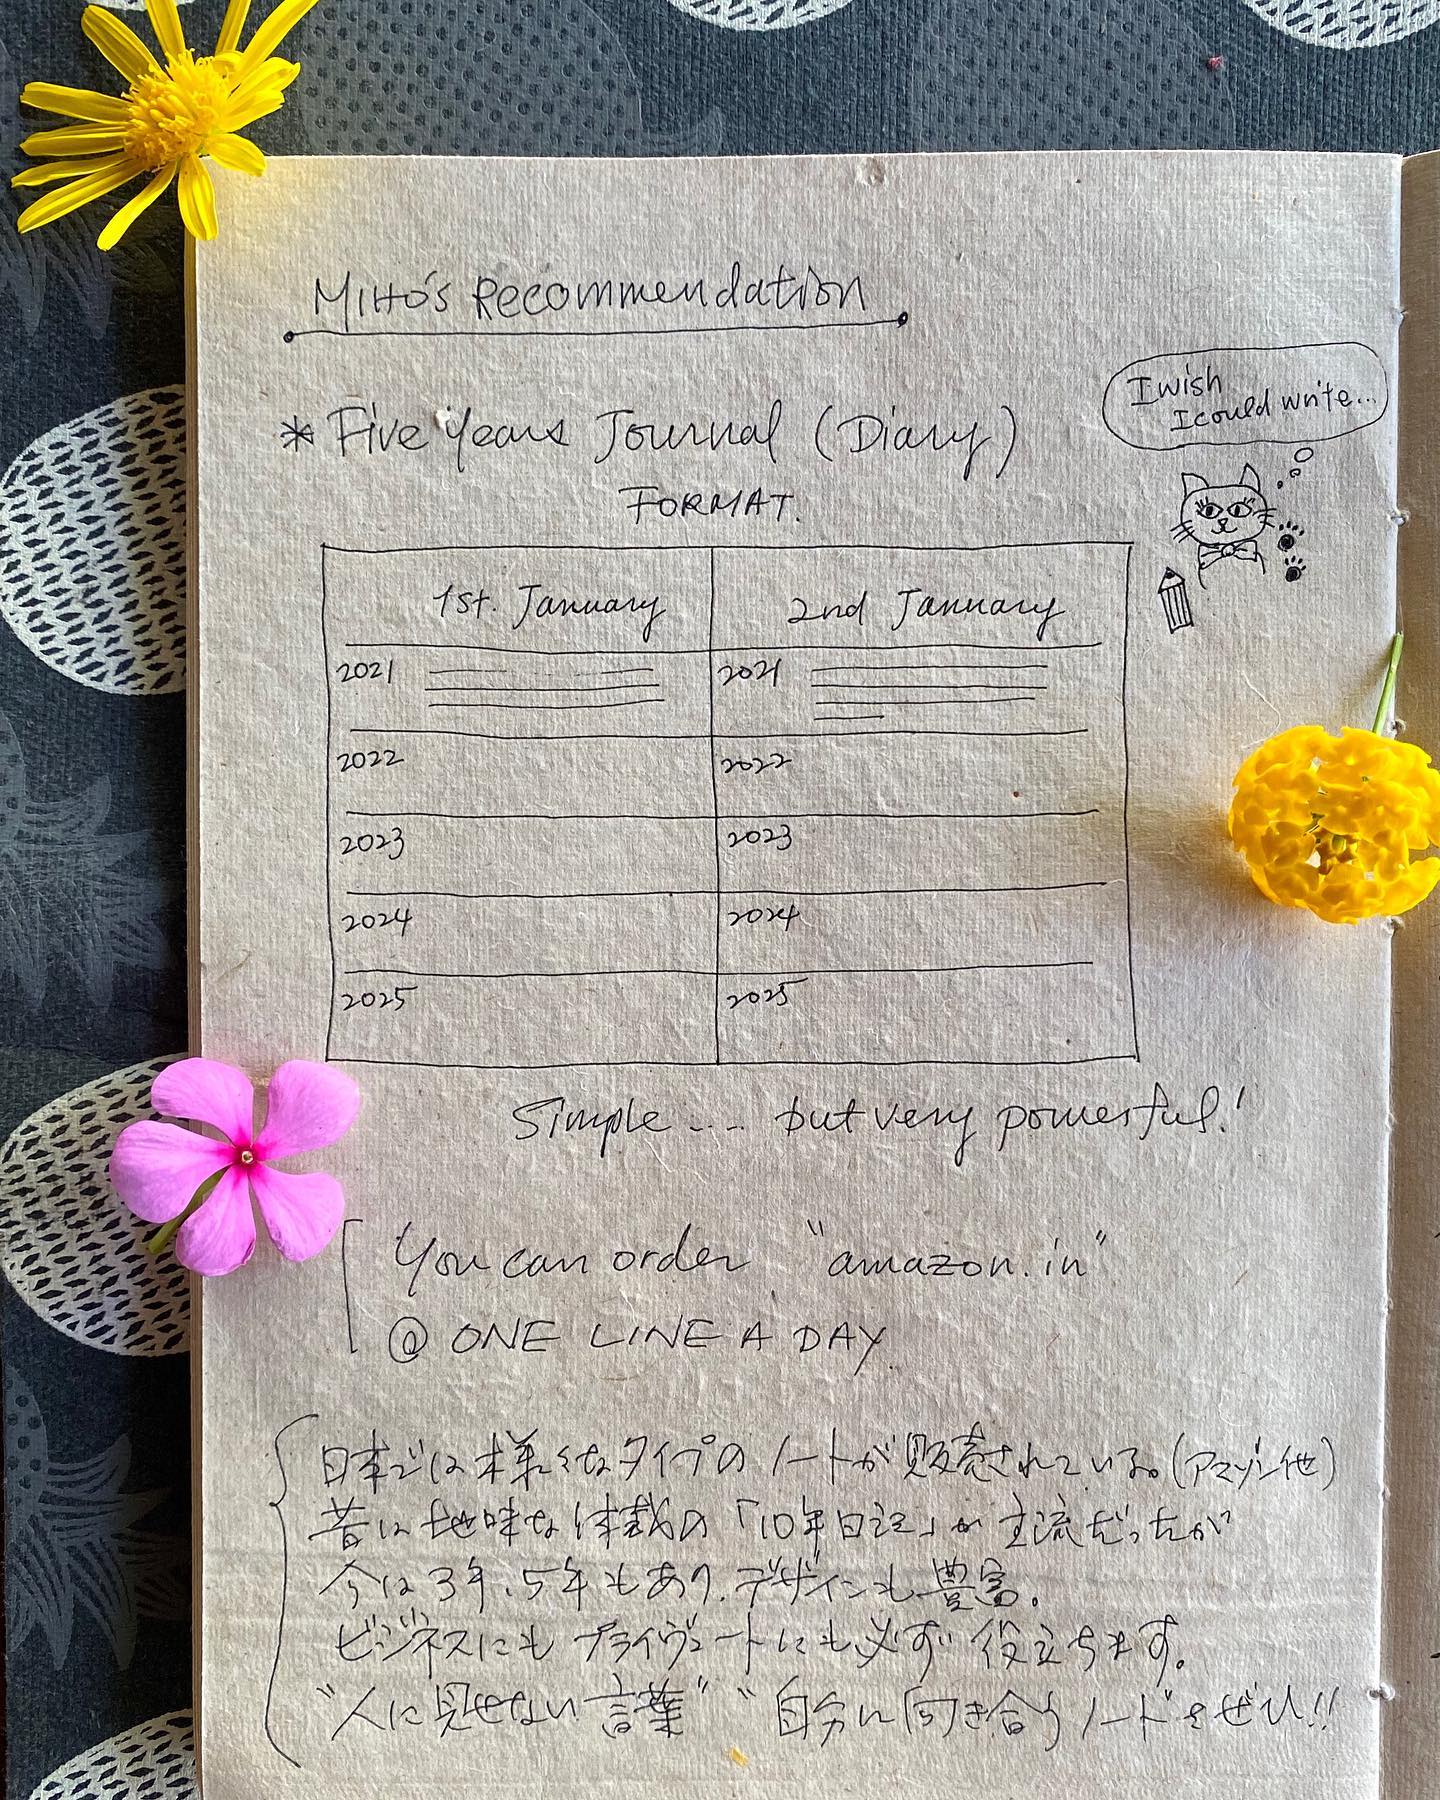 MIHO's Recommendation
* Five Years Journal (Diary)
FORMAT.
I wish
I could write...
1st. January
2nd January
2021
2021
2022
2022
2023
2023
2024
2024
2025
2025
Simple.... but very powerful!
You can order "amazon.in"
@ ONE LINE A DAY.
日本では様々なタイプのノートが販売されている。(アマゾン他)
昔は地味な体裁の「10年日記」が主流だったが
今は3年、5年もあり、デザインも豊富。
ビジネスにもプライヴェートにも必ず役立ちます。
"人に見せない言葉" "自分に向き合うノート"をぜひ!!